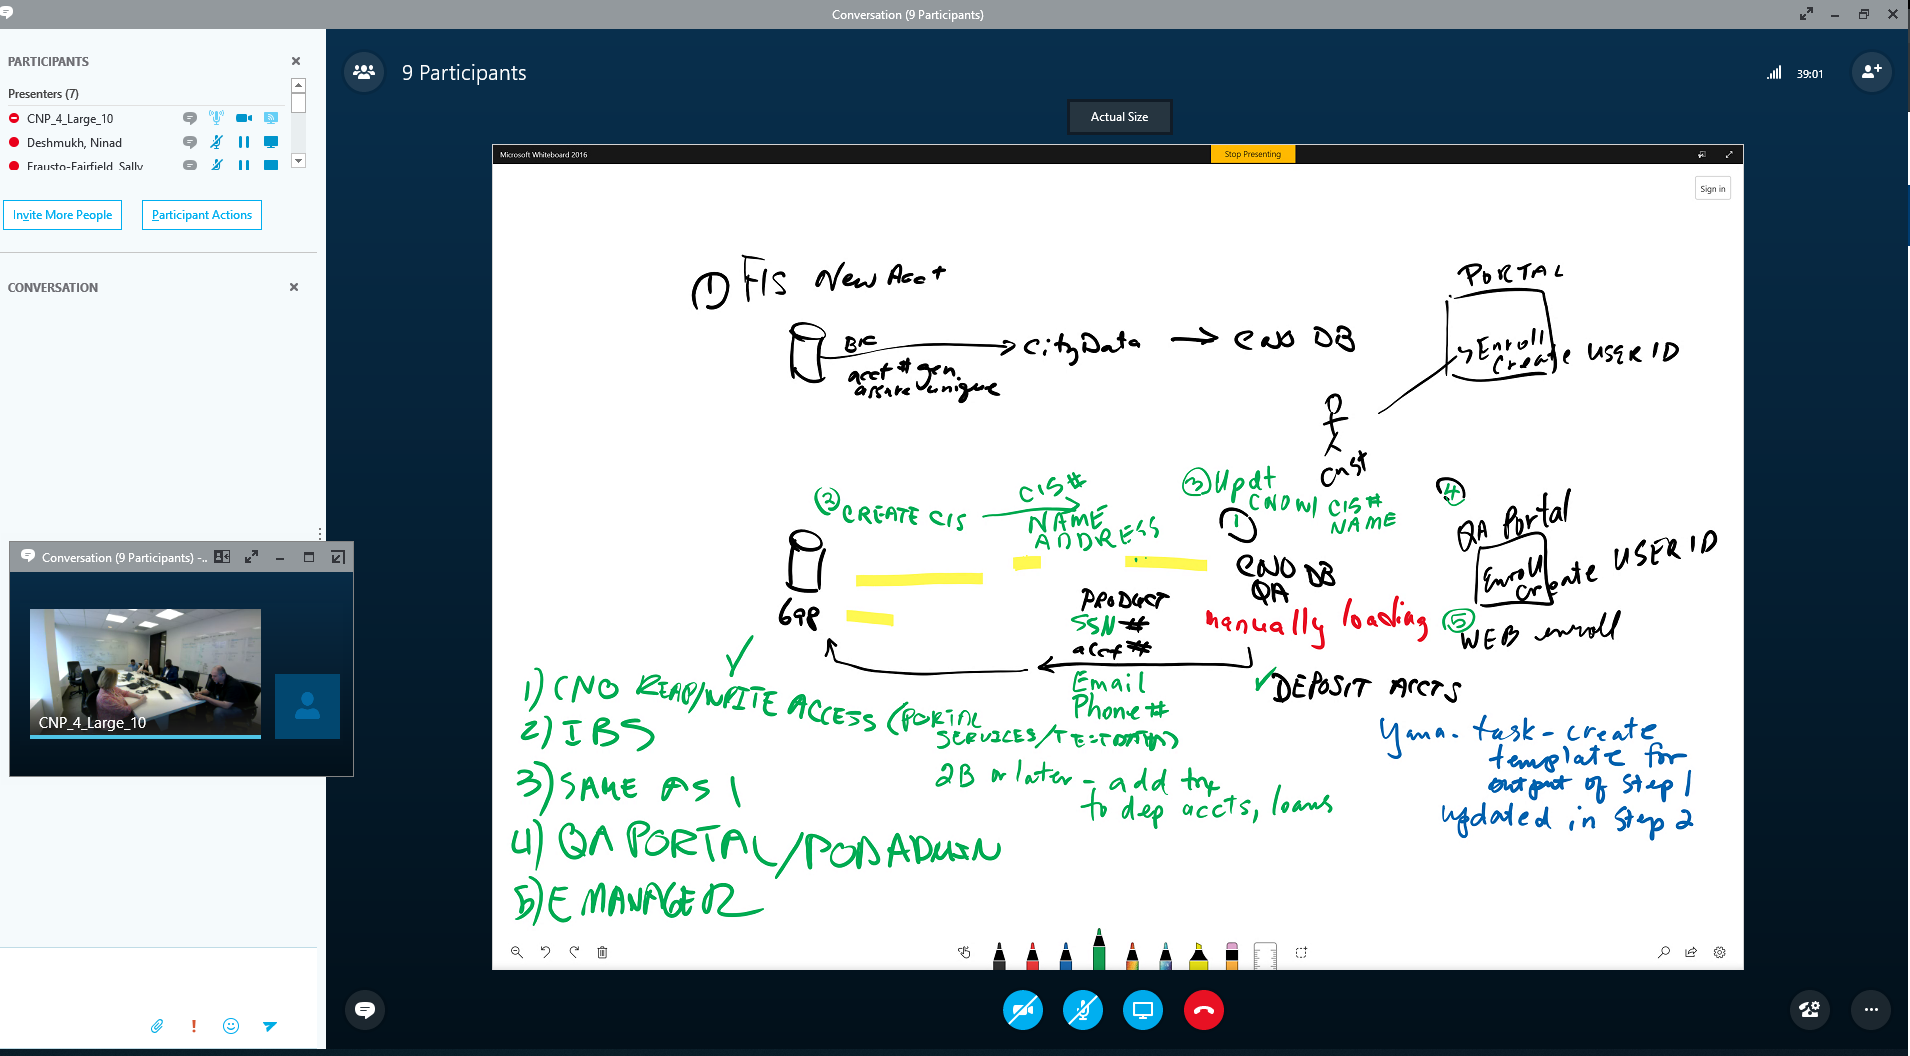 Conversation (9 Participants)
PARTICIPANTS
Presenters (7)
CNP_4_Large_10
Deshmukh, Ninad
Frausto-Fairfield, Sally
Invite More People
Participant Actions
CONVERSATION
Conversation (9 Participants) -..
CNP_4_Large_10
9 Participants
39:01
Actual Size
Microsoft Whiteboard 2016
Stop Presenting
Sign in
① FIS New Acct
acct # gen.
assure unique
CityData
DB
PORTAL
Enroll
Create USER ID
Cust
② CREATE CIS
CIS#
NAME
ADDRESS
③ Updt
CIS#
NAME
①
DB
QA
manually loading
④
QA Portal
Enroll
Create USER ID
⑤
WEB enroll
PRODUCT
SSN #
acct #
Email
Phone #
DEPOSIT ACCTS
1) CNO READ/WRITE ACCESS (PORTAL
SERVICES/
2) IBS
3) SAME AS 1
4) QA PORTAL/PODADMIN
5) E MANAGER
2B or later - add
to dep accts, loans
Yana - task - create
template for
output of Step 1
updated in Step 2